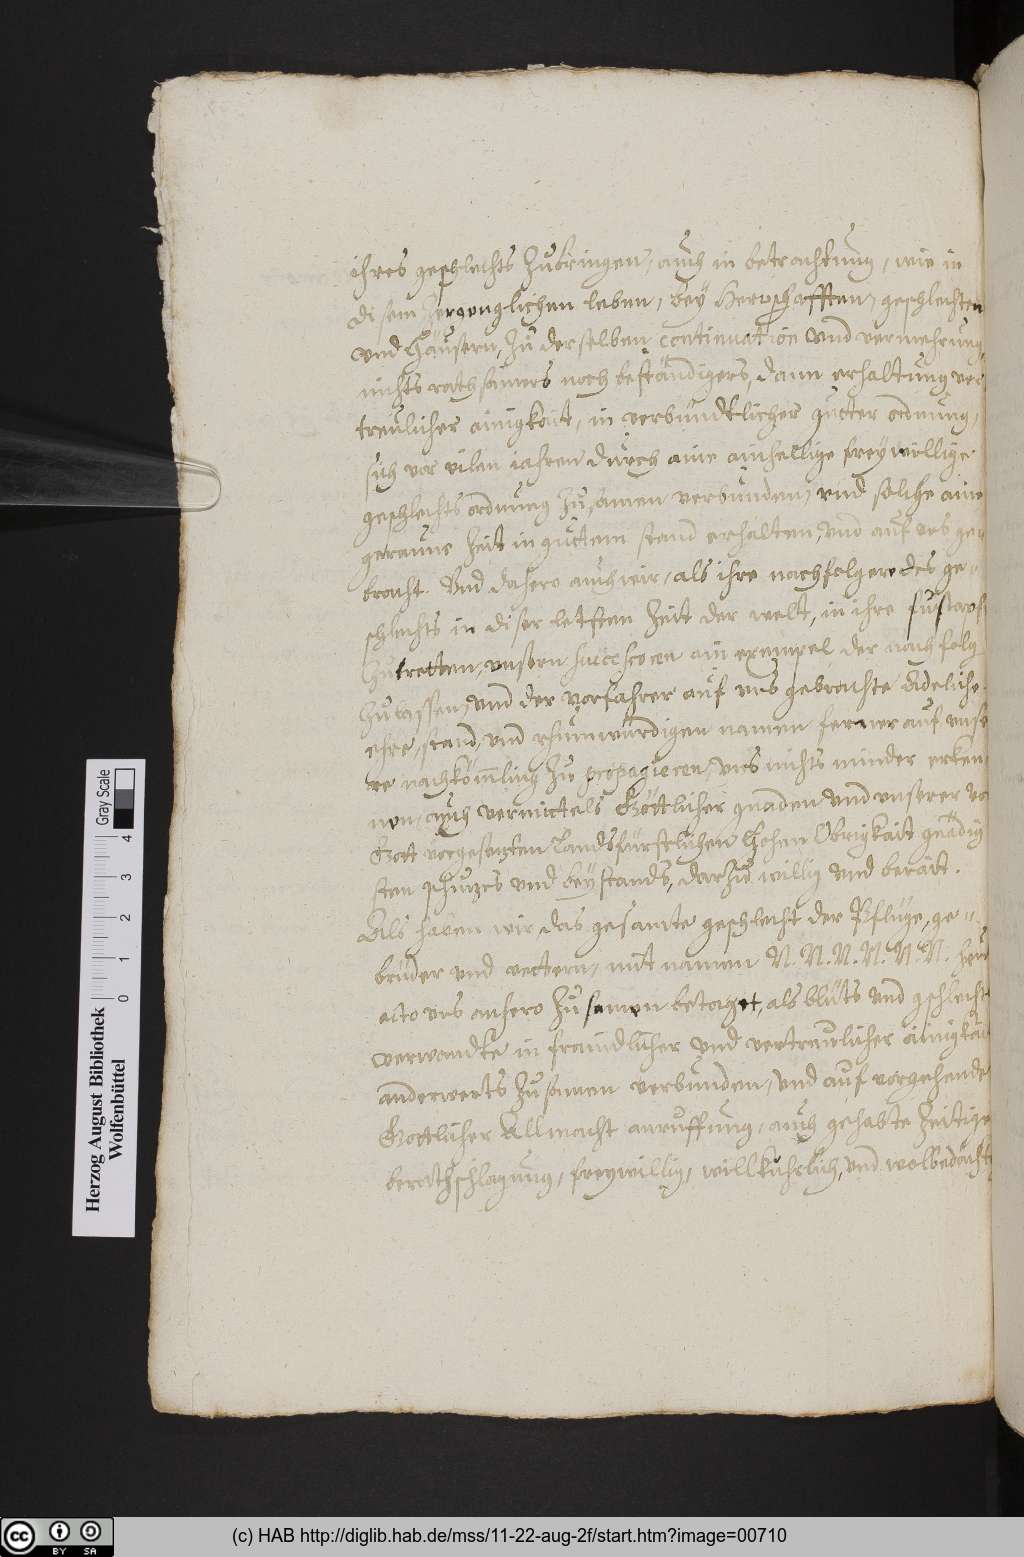 ihres geschlechts zubringen, auch in betrachtung, wie in
disem zergenglichen leben, bey Herrschafften, geschlechten
und Häusern, zu derselben continuation und vermehrung,
nichts rathsamers noch beständigers, dann erhaltung ver
treulicher ainigkait, in verbündtlicher gutter ordnung,
sich vor vilen iahren durch aine ainhellige freywillige
geschlechts ordnung zusamen verbunden, und solche aine
geraume Zeit in guttem stand erhalten, und auf uns ge-
bracht. Und dahero auch wir, als ihre nachfolgere des ge-
schlechts in diser letsten Zeit der welt, in ihre fusstapf
zutretten, unsern successoren ain exempel der nachfolg
zulassen, und der vorfahrer auf uns gebrachte Adeliche
ehre, stand, und rhumwürdigen namen ferner auf unse
re nachkömling zu propagieren, uns nichts minder erken
nen, auch vermittels Göttlicher gnaden und unserer vo
Gott vorgesetzten Landsfürstlichen Hohen Obrigkait gnädig
sten schuzes und beystands, darzu willig und berait.
Als haben wir das gesamte geschlecht der Pflüge, ge-
brüder und vettern, mit namen N. N. N. N. N. N. heut
dato uns anhero zusamen betaget, als bluts und gschlecht
verwandte in fraindlicher und vertrewlicher ainigkait
anderwerts zusamen verbunden, und auf vorgehende
Gottlicher Allmacht anruffung, auch gehabte zeitige
berathschlagung, freywillig, willkuhrlich, und wolbedächt
Herzog August Bibliothek
Wolfenbüttel
0 1 2 3 4
Gray Scale
cc BY SA
(c) HAB http://diglib.hab.de/mss/11-22-aug-2f/start.htm?image=00710